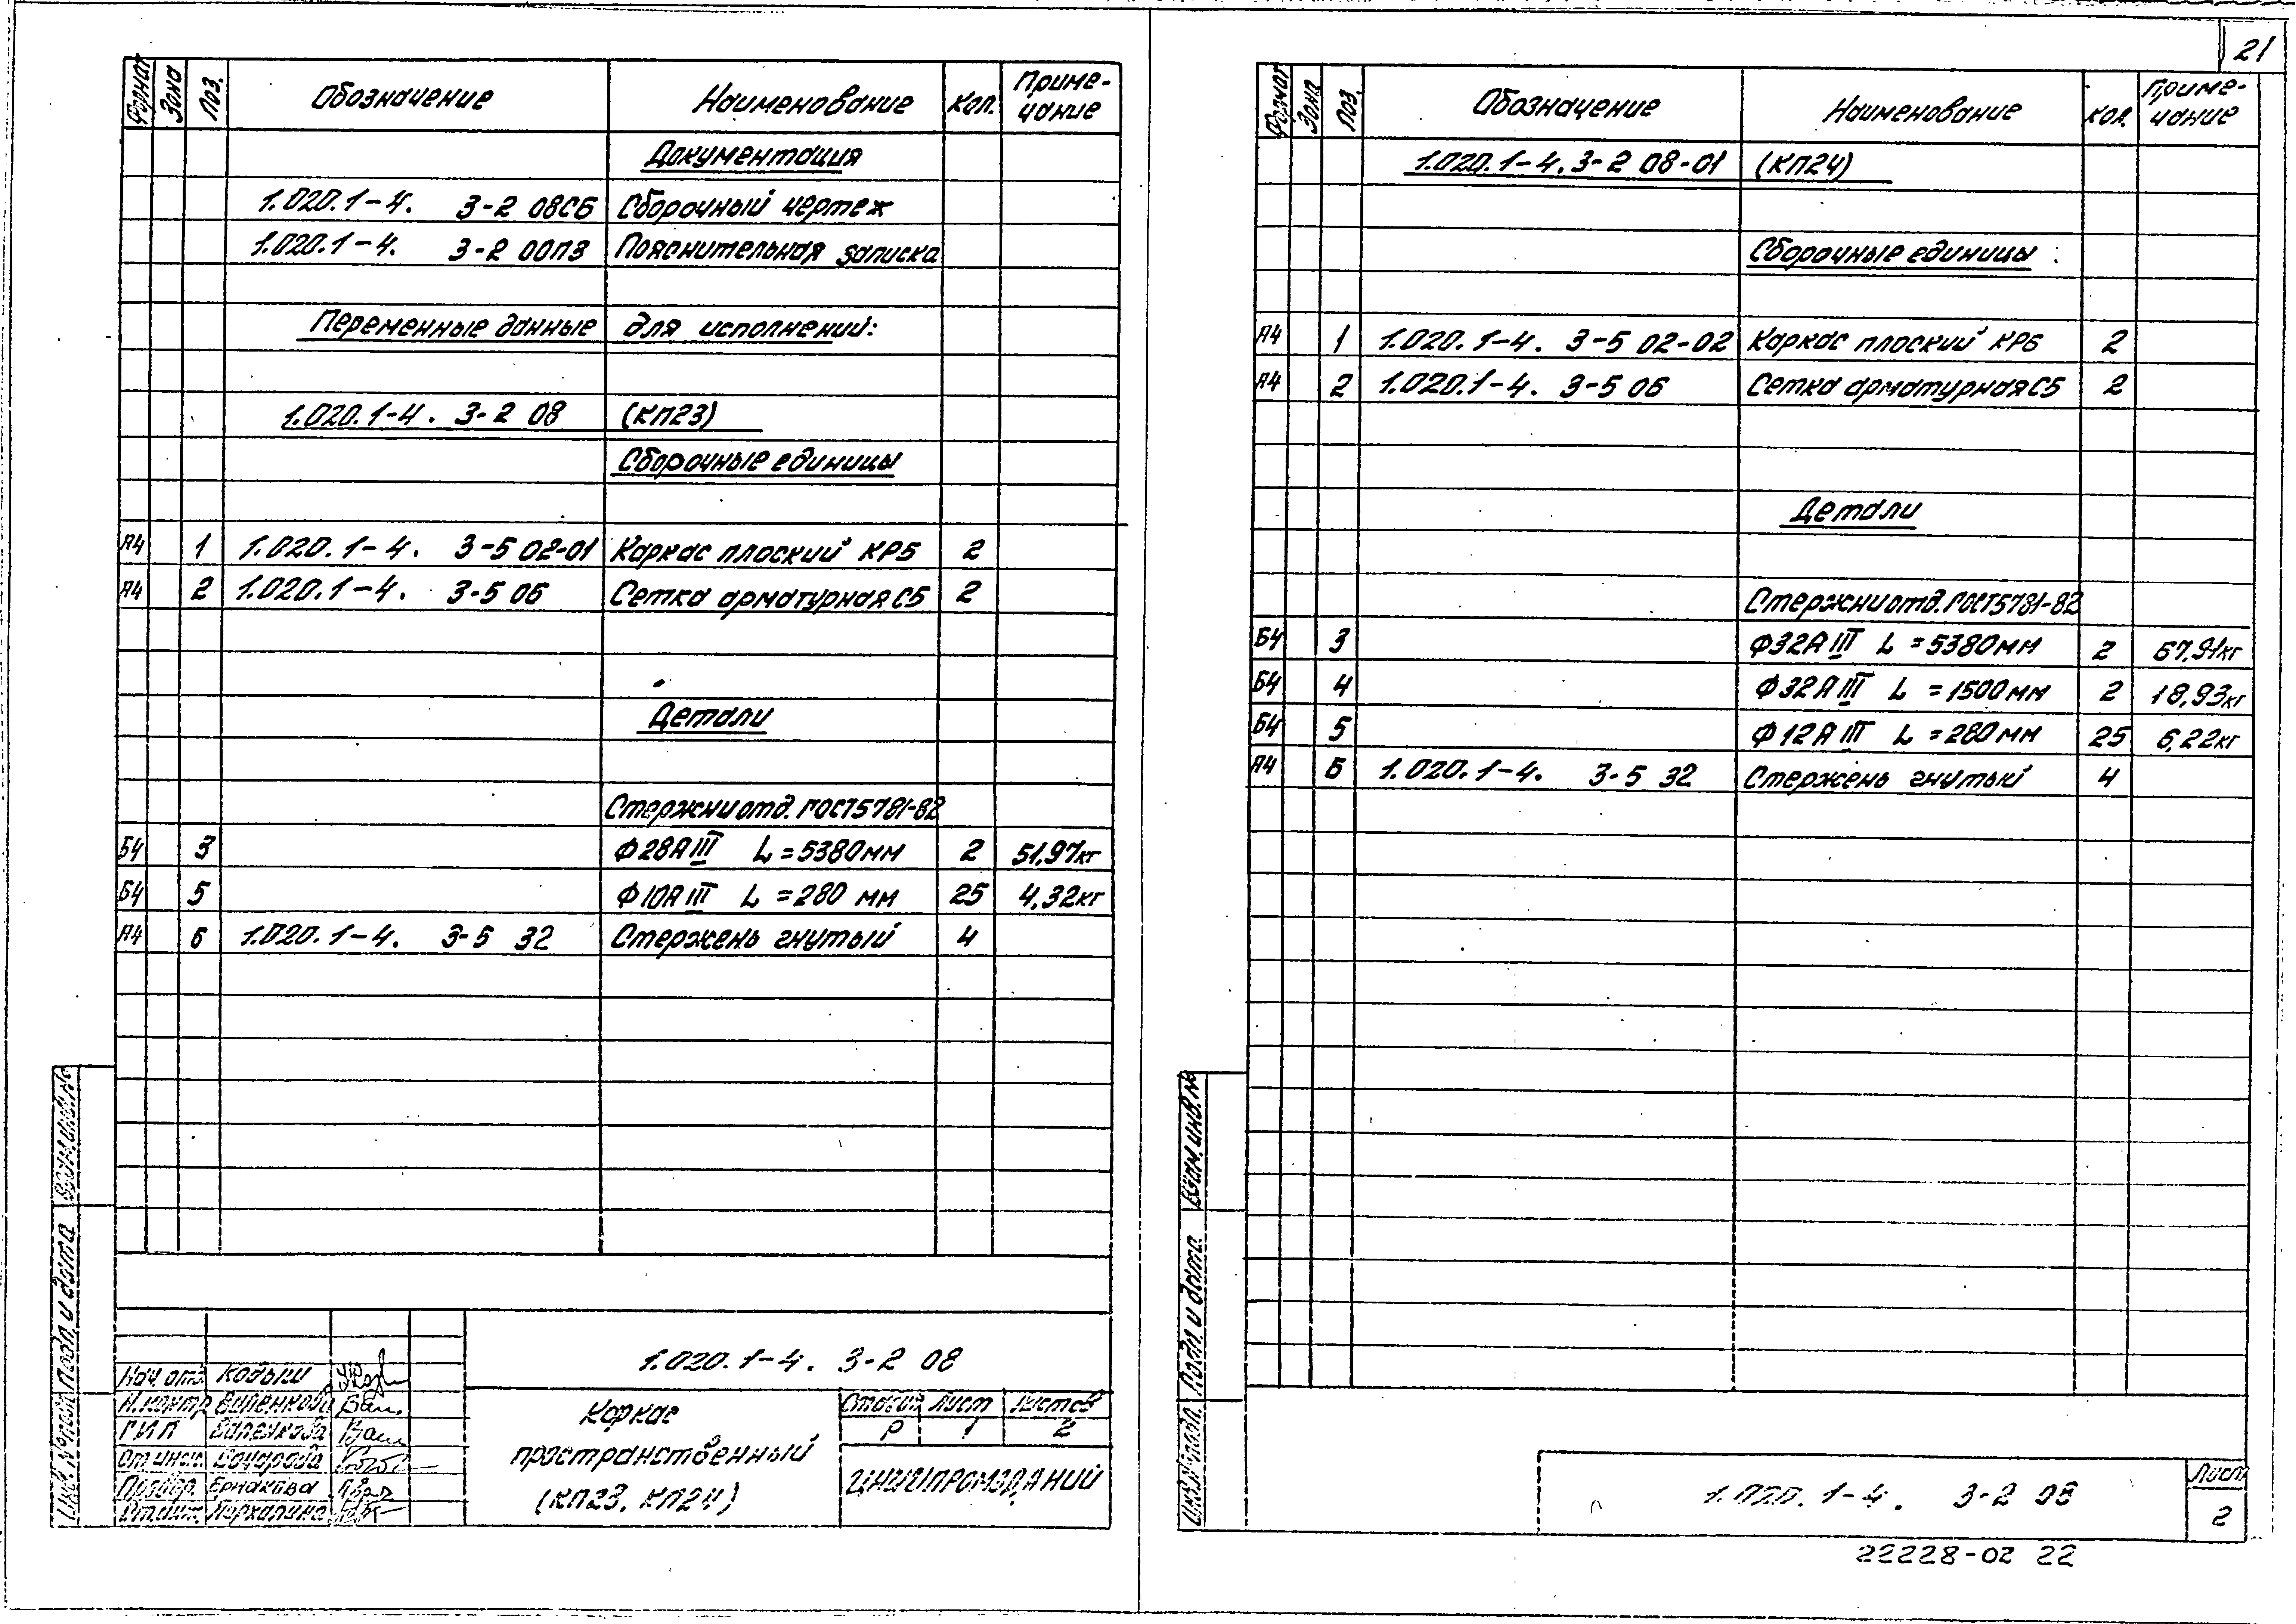 21
Формат Зона Поз. Обозначение Наименование Кол. Приме-
чание
Документация
1.020.1-4. 3-2 08СБ Сборочный чертеж
1.020.1-4. 3-2 00ПЗ Пояснительная записка
Переменные данные для исполнений:
1.020.1-4. 3-2 08 (КП23)
Сборочные единицы
А4 1 1.020.1-4. 3-5 02-01 Каркас плоский КР5 2
А4 2 1.020.1-4. 3-5 06 Сетка арматурная С5 2
Детали
Стержни отд. ГОСТ 5781-82
Б4 3 Ф28АIII L=5380мм 2 51,97кг
Б4 5 Ф10АIII L=280 мм 25 4,32кг
А4 6 1.020.1-4. 3-5 32 Стержень гнутый 4
Взам.инв.№
Подп. и дата
Инв.№ подл.
1.020.1-4. 3-2 08
Нач. отд. Кодыш
Н.контр. Виленкова
ГИП Виленкова
Ст.инж. Бочарова
Провер. Ермакова
Ст.инж.
Каркас
пространственный
(КП23, КП24)
Стадия Лист Листов
Р 1 2
ЦНИИПРОМЗДАНИЙ
Формат Зона Поз. Обозначение Наименование Кол. Приме-
чание
1.020.1-4. 3-2 08-01 (КП24)
Сборочные единицы
А4 1 1.020.1-4. 3-5 02-02 Каркас плоский КР6 2
А4 2 1.020.1-4. 3-5 06 Сетка арматурная С5 2
Детали
Стержни отд. ГОСТ 5781-82
Б4 3 Ф32АIII L=5380мм 2 67,91кг
Б4 4 Ф32АIII L=1500мм 2 18,93кг
Б4 5 Ф12АIII L=280мм 25 6,22кг
А4 6 1.020.1-4. 3-5 32 Стержень гнутый 4
Взам.инв.№
Подп. и дата
Инв.№ подл.
1.020.1-4. 3-2 08
Лист
2
22228-02 22